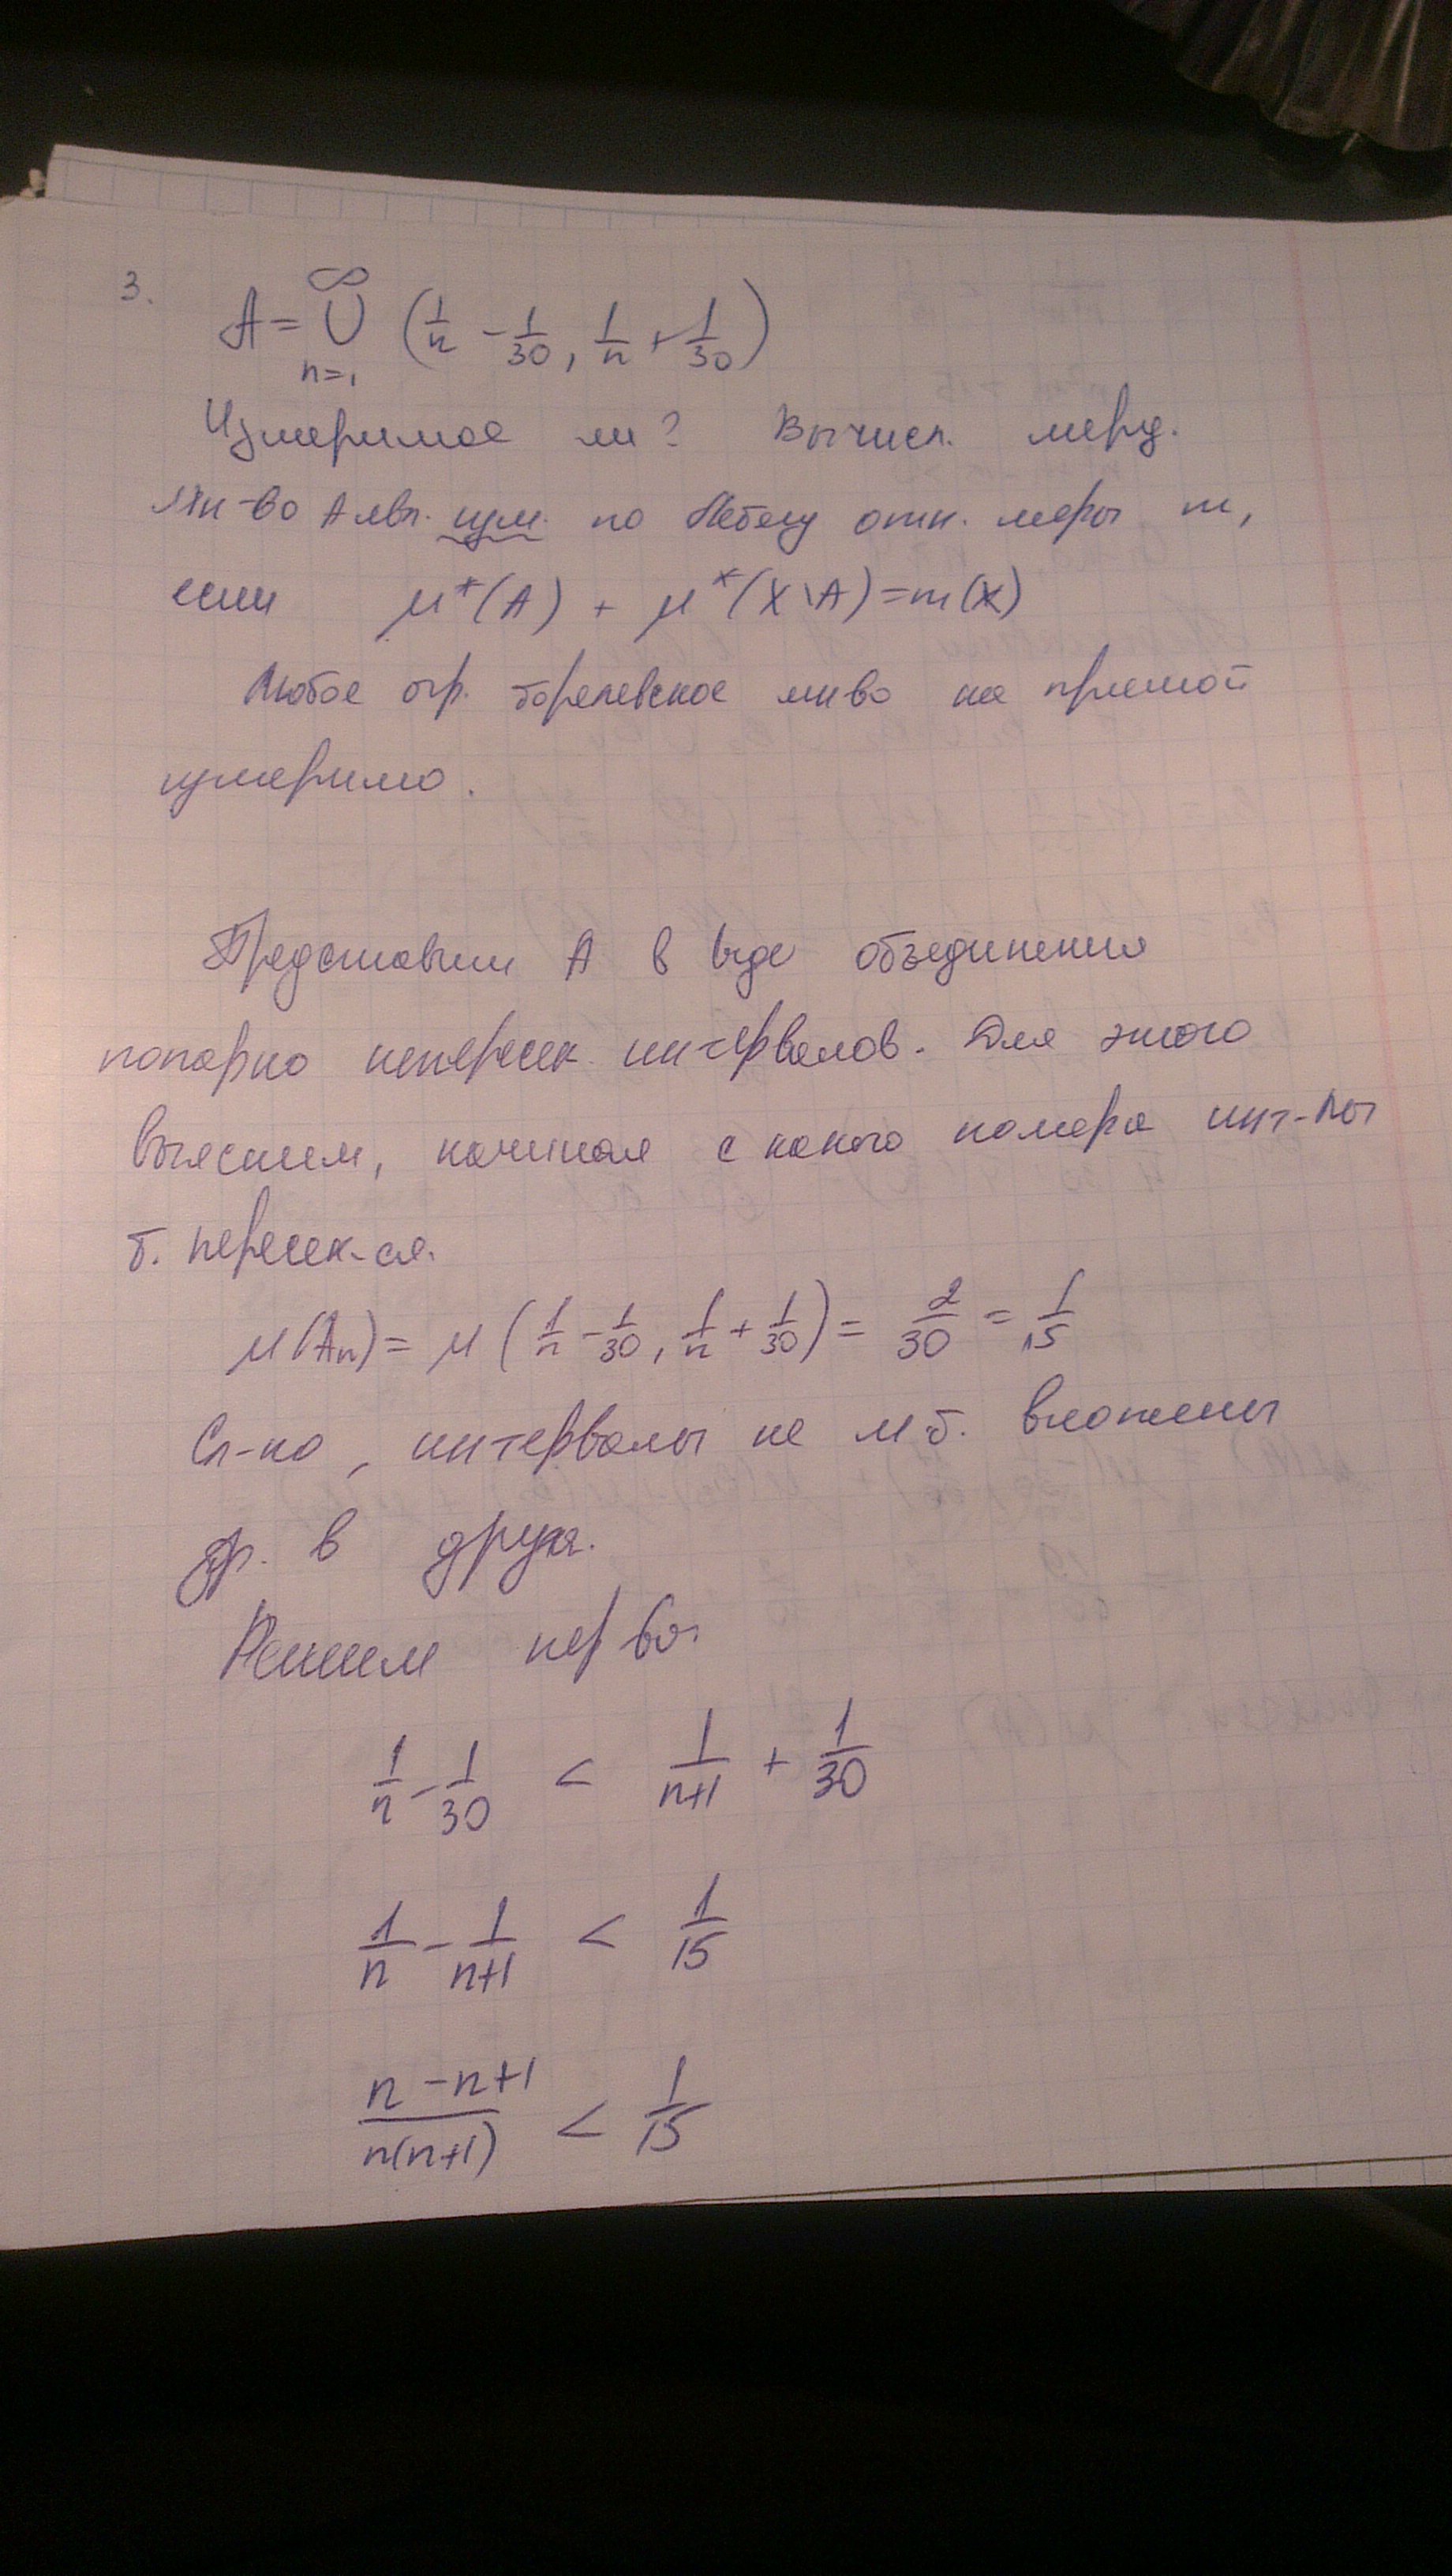 3.
A = ∞ ∪ n=1 (1/n - 1/30, 1/n + 1/30)
Измеримое ли? Вычисл. меру.
Мн-во А явл. изм. по Лебегу отн. меры m,
если μ*(A) + μ*(X\A) = m(X)
Любое огр. борелевское мн-во на прямой
измеримо.
Представим А в виде объединения
попарно непересек. интервалов. Для этого
выясним, начиная с какого номера инт-лы
б. пересек-ся.
μ(An) = μ(1/n - 1/30, 1/n + 1/30) = 2/30 = 1/15
Сл-но, интервалы не м.б. вложены
др. в друга.
Решим нер-во.
1/n - 1/30 < 1/n+1 + 1/30
1/n - 1/n+1 < 1/15
n - n+1/n(n+1) < 1/15